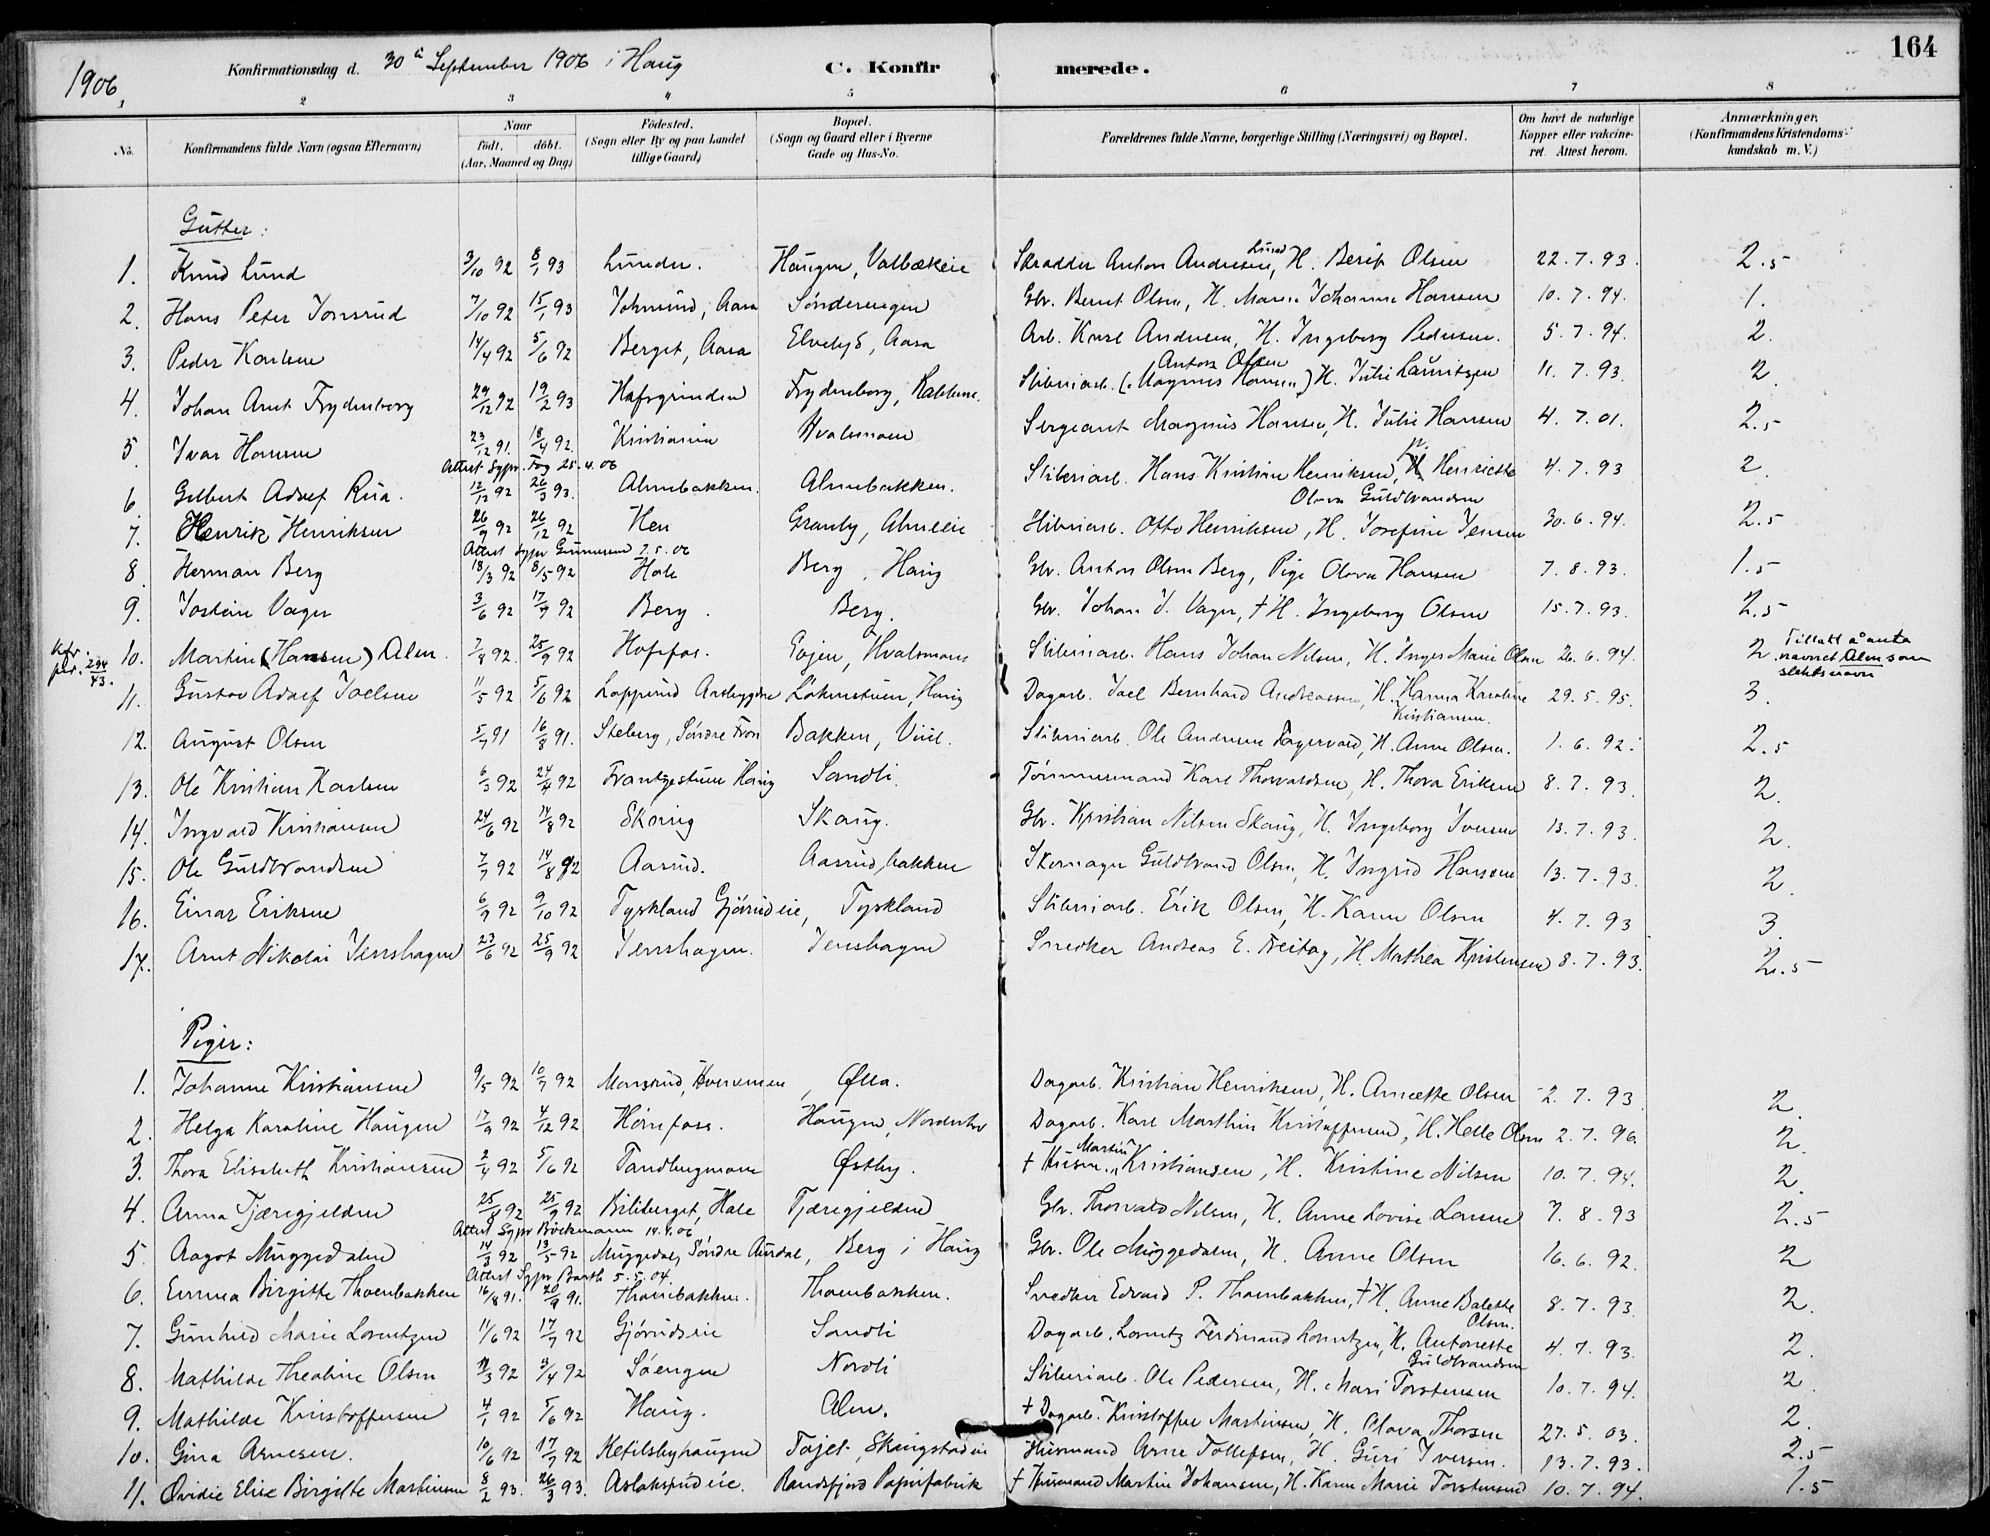 164
1906
Konfirmationsdag d. 30te September 1906 i Haug
C. Konfirmerede.
1 2 3 4 5 6 7 8
No. Konfirmandens fulde Navn (ogsaa Efternavn) Naar födt. döbt. (Aar, Maaned og Dag) Födested. (Sogn eller By og paa Landet tillige Gaard) Bopæl. (Sogn og Gaard eller i Byerne Gade og Hus-No. Forældrenes fulde Navne, borgerlige Stilling (Næringsvei) og Bopæl. Om havt de naturlige Kopper eller vakcineret. Attest herom. Anmærkninger. (Konfirmandens Kristendomskundskab m. V.)
Gutter:
1. Knud Lund 3/10 92 8/1 93 Lunder. Haugen, Valbækeie Skrædder Anton Andersen Lund, H. Berit Olsen 22.7.93. 2.5
2. Hans Peter Jonsrud 7/10 92 15/1 93 Johnsrud, Aasa Sönderengen Gbr. Bernt Olsen, H. Maren Johanne Hansen 10.7.94. 1.
3. Peder Karlsen 14/4 92 5/6 92 Berget, Aasa Elvely, Aasa Arb. Karl Andersen, H. Ingeborg Pedersen. 5.7.94. 2.
4. Johan Arnt Frydenborg 29/12 92 19/2 93 Hafsgrinden Frydenborg, Sliberiarb. Anton Olsen (Magnus Hansen) H. Julie Lauritzen 11.7.93. 2.
5. Ivar Hansen 23/12 91. 18/4 92. Kristiania Hvalsmoen Sergeant Magnus Hansen, H. Julie Hansen 4.7.01. 2.5
Attest Sgpr. 25.4.06
6. Gilbert Adolf Rua. 12/12 92 26/3 93. Almebakken. Almebakken. Sliberiarb. Hans Kristian Henriksen, H. Henriette Olava Guldbrandsen 4.7.93 2.
7. Henrik Henriksen 26/9 92 26/12 92 Hen Granly, Almeie Sliberiarb. Otto Henriksen, H. Josefine Jensen 30.6.94. 2.5
Attest Sgpr Gunnersen 7.5.06
8. Herman Berg 18/3 92 8/5 92 Hole Berg, Haug Gbr. Anton Olsen Berg, Pige Olava Hansen 7.8.93. 1.5
9. Jostein Vager 3/6 92 17/7 92 Berg. Berg. Gbr. Johan J. Vager, † H. Ingeborg Olsen 15.7.93. 2.5
Kfr. pkr. 294/43. 10. Martin (Hansen) Alm 7/8 92. 25/9 92 Hofsfos. Hvalsmoen Sliberiarb. Hans Johan Nilsen, H. Inger Marie Olsen 26.6.94. 2 Tillatt å anta navnet Alm som slektsnavn
11. Gustav Adolf Joelsen 11/5 92 5/6 92 Lopperud Aasbygden Lökenstuen, Haug Dagarb. Joel Bernhard Andreassen, H. Hanna Karoline Kristiansen. 29.5.95. 3.
12. August Olsen 5/7 91 16/8 91. Steberg, Söndre Fron Bakken, Viul. Sliberiarb. Ole Andersen Fagervold, H. Anne Olsen. 1.6.92. 2.5
13. Ole Kristian Karlsen 6/3 92 24/4 92 Frantzestuen Haug Sandli Tömmermand Karl Thorvaldsen, H. Thora Eriksen 8.7.93. 2.
14. Ingvald Kristiansen 24/6 92 14/8 92 Skaug Skaug. Gbr. Kristian Nilsen Skaug, H. Ingeborg Iversen 13.7.93. 2.
15. Ole Guldbrandsen 7/7 92 14/8 92 Aasrud. Aasrudbakken Skomager Guldbrand Olsen, H. Ingrid Hansen 13.7.93. 2.
16. Einar Eriksen 6/9 92 9/10 92 Tyskland Gjörudeie, Tyskland Sliberiarb. Erik Olsen, H. Karen Olsen 4.7.93 3.
17. Arnt Nikolai Jenshagen 23/6 92 25/9 92 Jenshagen. Jenshagen Snedker Andreas E. Freitag, H. Mathea Kristensen 8.7.93. 2.5
Piger:
1. Johanne Kristiansen 9/5 92 10/7 92 Monsrud, Øvla. Dagarb. Kristian Henriksen, H. Annette Olsen 2.7.93 2.
2. Helga Karoline Haugen 17/9 92 4/12 92 Hönefoss. Haugen, Norderhov Dagarb. Karl Marthin Kristoffersen, H. Helle Olsen 2.7.96. 2.
3. Thora Elisabeth Kristiansen 2/4 92 5/6 92 Tandbergmoen Østby. † Husm. Martin Kristiansen, H. Kristine Nilsen 10.7.94. 2.
4. Anna Tjæregjelden 25/8 92 25/9 92 Biliberget, Hole Tjæregjelden Gbr. Thorvald Nilsen, H. Anne Lovise Larsen 7.8.93 2.5
Attest Sgpr Böckmann 14.9.06
5. Aagot Muggedalen 14/3 92 13/5 92 Muggedal, Söndre Aurdal, Berg i Haug Gbr. Ole Muggedalen, H. Anne Olsen 16.6.92. 2
Attest Sgpr Barth 5.5.04.
6. Emma Birgitte Thoenbakken 16/8 91. 20/9 91. Thoenbakken. Thoenbakken. Snedker Edvard P. Thoenbakken, † H. Anne Balette Olsen. 8.7.93. 2.
7. Gunhild Marie Lorentzen 11/6 92 17/7 92 Gjörudseie Sandli Dagarb. Lorentz Ferdinand Lorentzen, H. Antonette Guldbrandsen 4.7.93. 2.
8. Mathilde Theoline Olsen 11/3 92 3/4 92 Söengen Nordli Sliberiarb. Ole Pedersen, H. Mari Torstensen 10.7.94. 2
9. Mathilde Kristoffersen 4/1 92 5/6 92 Haug. Alm. † Dagarb. Kristoffer Martinsen, H. Olava Thorsen 27.5.03. 2.
10. Gina Arnesen. 10/6 92 17/7 92 Ketilsbyhaugen Tajet, Skingstadeie Husmand Arne Tollefsen, H. Guri Iversen. 13.7.93. 2.5
11. Ovidie Elise Birgitte Martinsen 8/2 93. 26/3 93. Aslakspudeie. Randsfjord Papirfabrik † Husmand Martin Johansen, H. Karen Marie Torstensend 10.7.94. 1.5